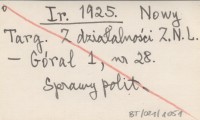 Ir. 1925. Nowy
Targ. Z działalności Z.N.L.
— Góral 1, nr 28.
Sprawy polit.
BT/021/1051